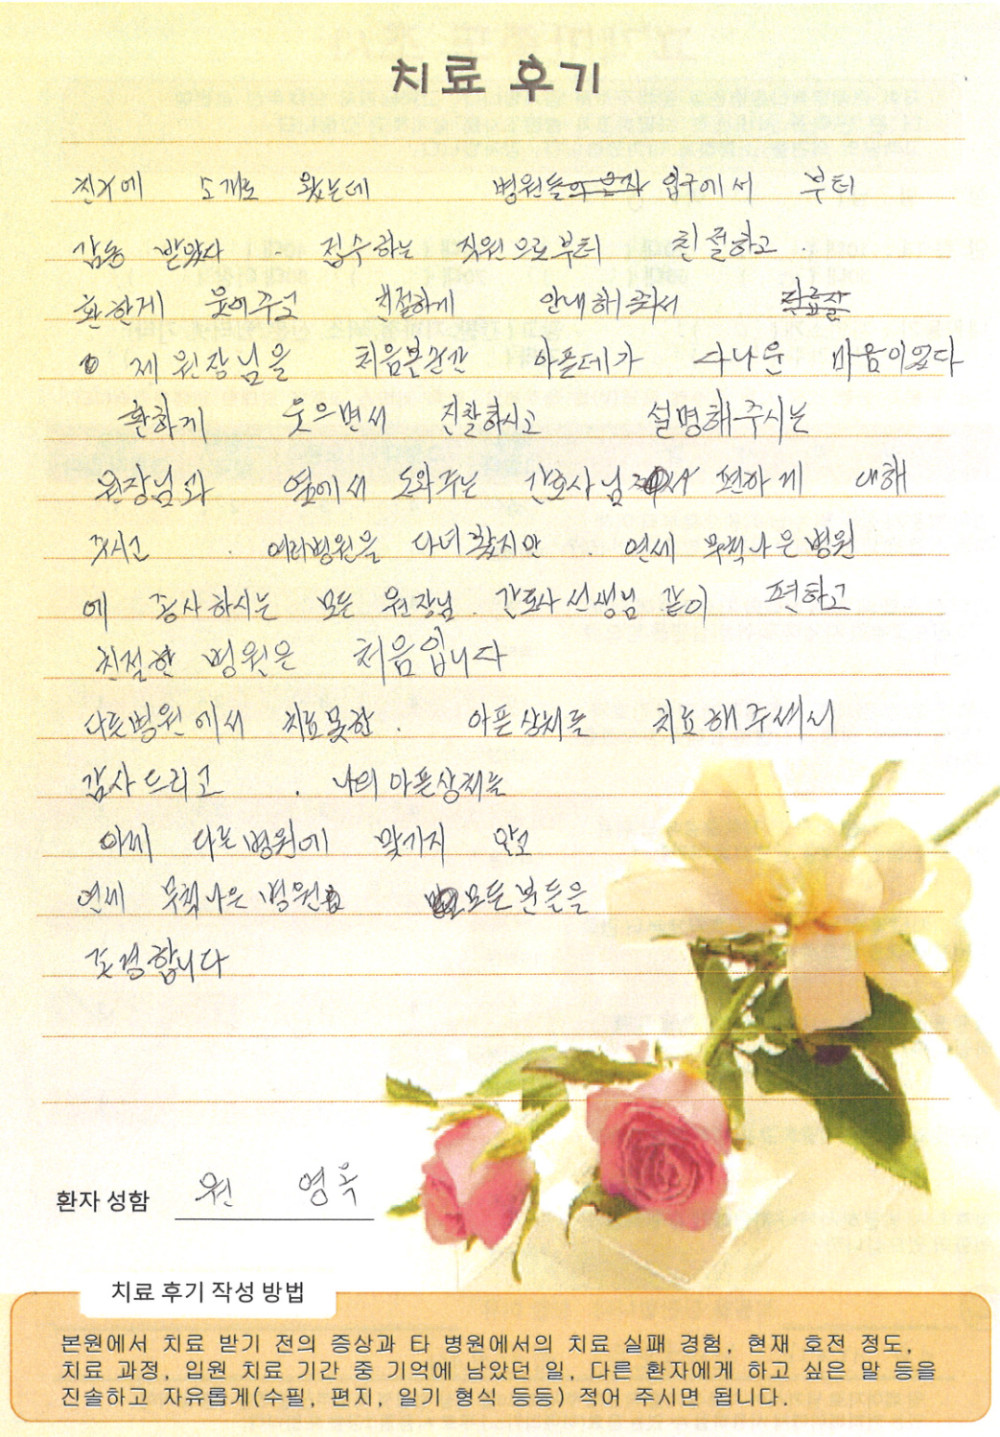 치료 후기
친구에 소개로 왔는데 병원들의 문자 입구에서 부터
감동 받았다 . 접수하는 직원으로부터 친절하고
환하게 웃어주고 친절하게 안내해 줘서
제 원장님을 처음본순간 아픈데가 다나은 마음이었다
환하게 웃으면서 진찰하시고 설명해주시는
원장님과 옆에서 도와주는 간호사님 편하게 대해
주시고 . 여러병원을 다녀봤지만 . 연세 무척나은병원
에 종사하시는 모든 원장님. 간호사 선생님 같이 편하고
친절한 병원은 처음입니다
다른병원에서 치료못한 . 아픈상처를 치료해주셔서
감사드리고 . 나의 아픈상처는
이제 다른병원에 맞기지 않고
연세 무척나은 병원 모든분들을
존경합니다
환자 성함 원 영옥
치료 후기 작성 방법
본원에서 치료 받기 전의 증상과 타 병원에서의 치료 실패 경험, 현재 호전 정도,
치료 과정, 입원 치료 기간 중 기억에 남았던 일, 다른 환자에게 하고 싶은 말 등을
진솔하고 자유롭게(수필, 편지, 일기 형식 등등) 적어 주시면 됩니다.